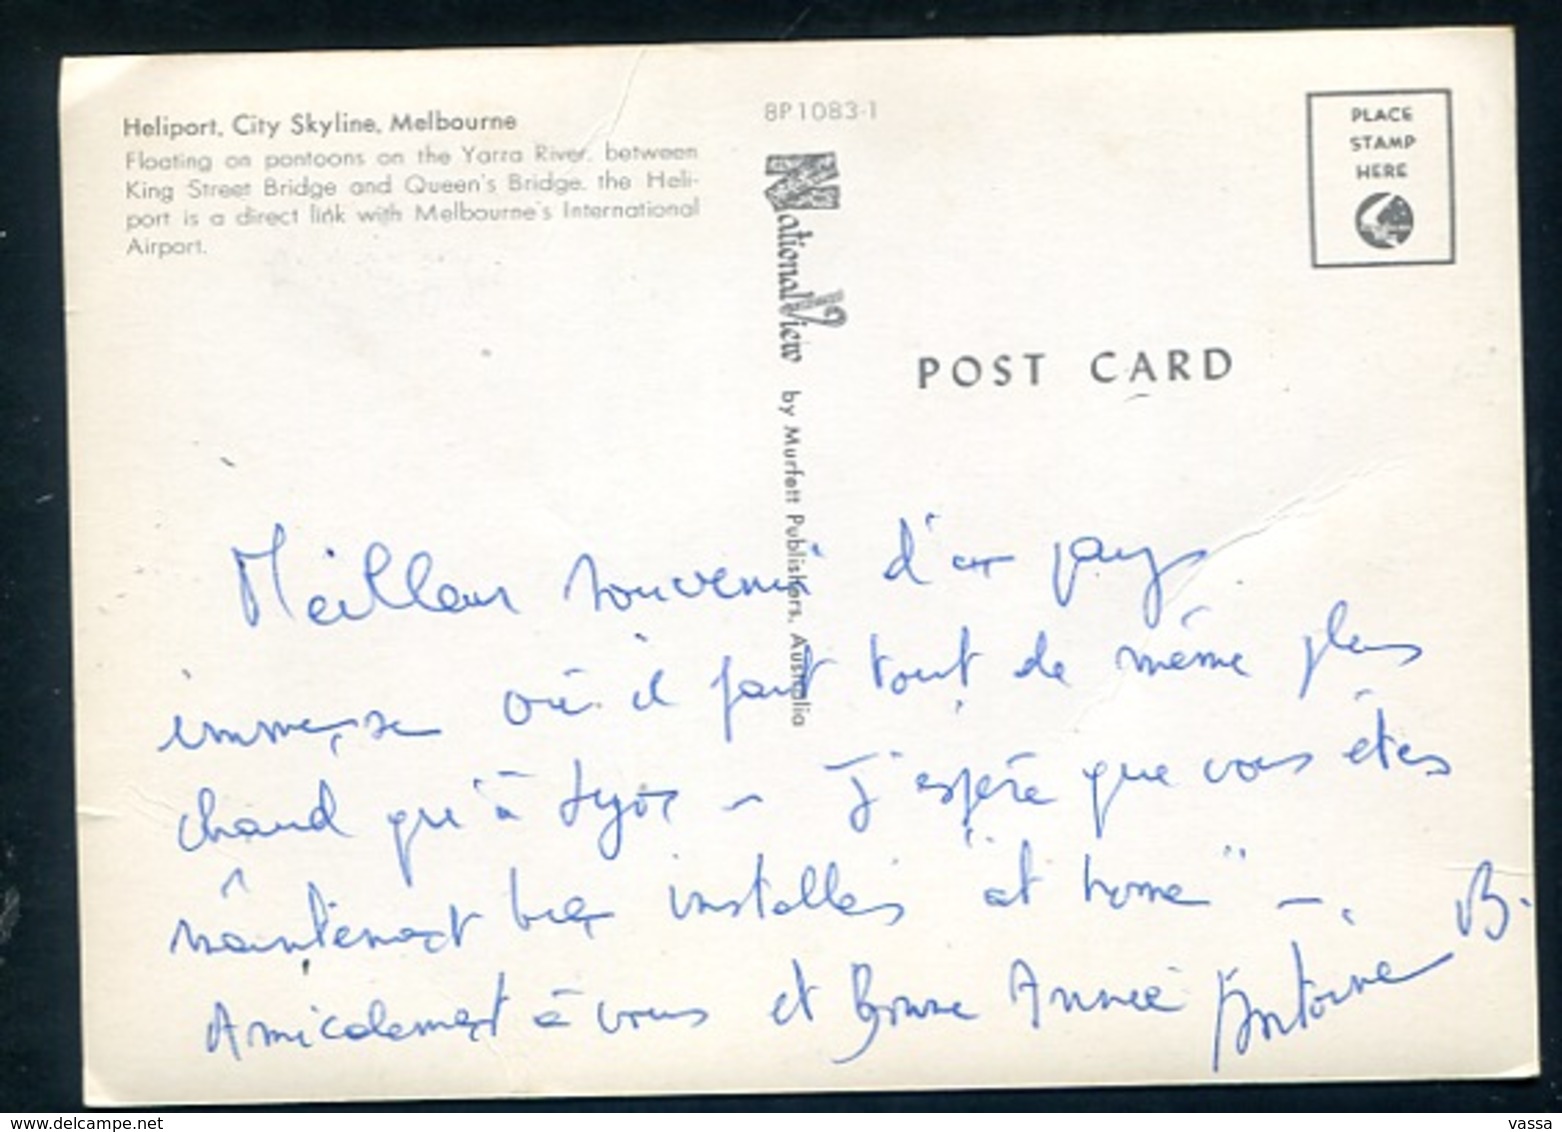 Heliport, City Skyline, Melbourne
Floating on pontoons on the Yarra River, between
King Street Bridge and Queen's Bridge, the Heli-
port is a direct link with Melbourne's International
Airport.
8P1083-1
National View by Murfett Publishers, Australia
PLACE
STAMP
HERE
POST CARD
Meilleur souvenir d'un pays
immense où il fait tout de même plus
chaud qu'à Lyon - J'espère que vous êtes
maintenant bien installés "at home" -
Amicalement à vous et Bonne Année Antoine B.
www.delcampe.net
vassa